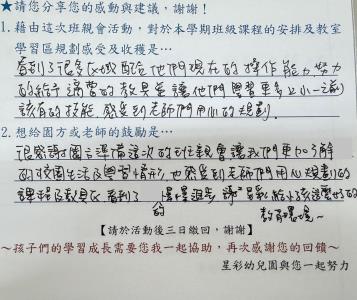 ★請您分享您的感動與建議，謝謝！
1. 藉由這次班親會活動，對於本學期班級課程的安排及教室
學習區規劃感受及收穫是…
看到了很多區域配合他們現在的操作能力努力
的給予適當的教具是讓他們學習更多上小一之前
該有的技能，感受到老師們用心的規劃。
2. 想給園方或老師的鼓勵是…
很感謝園方準備這次的班親會讓我們更加了解
的校園生活及學習情形，也感受到老師們用心規劃的
課程及教具區看到了 慢慢進步 謝 給小孩這麼好的
的 教育環境~
【請於活動後三日繳回，謝謝】
～孩子們的學習成長需要您我一起協助，再次感謝您的回饋～
星彩幼兒園與您一起努力